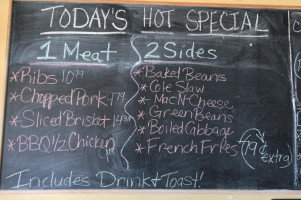 TODAY'S HOT SPECIAL
1 Meat
*Ribs 10.99
*Chopped Pork
*Sliced Brisket
*BBQ 1/2 Chicken
2 Sides
*Baked Beans
*Cole Slaw
*Mac N Cheese
*Green Beans
*Boiled Cabbage
*French Fries
(79¢ extra)
Includes Drink & Toast!